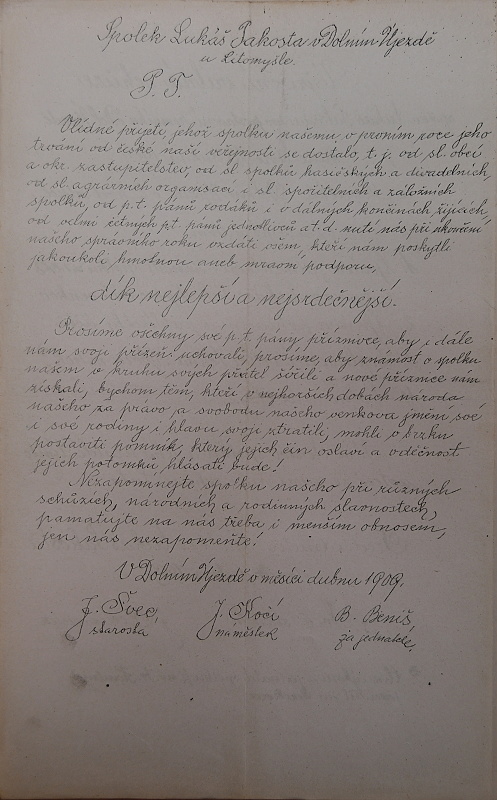 Spolek Lukáš Pakosta v Dolním Újezdě
u Litomyšle.
P. T.
Vlídné přijetí, jehož spolku našemu v prvním roce jeho
trvání od české naší veřejnosti se dostalo, t. j. od sl. obcí
a okr. zastupitelstev, od sl. spolků hasičských a divadelních,
od sl. agrárních organisací i sl. spořitelních a záložních
spolků, od p. t. pánů rodáků i v dálných končinách žijících,
od velmi četných pt. pánů jednotlivců a t. d. nutí nás při ukončení
našeho správního roku vzdáti všem, kteří nám poskytli
jakoukoli hmotnou aneb mravní podporu,
dík nejlepší a nejsrdečnější.
Prosíme všechny své p. t. pány příznivce, aby i dále
nám svoji přízeň uchovali, prosíme, aby známost o spolku
našem v kruhu svých přátel šířili a nové příznivce nám
získali, bychom těm, kteří v nejhorších dobách národa
našeho za právo a svobodu našeho venkova jmění své
i své rodiny i hlavu svoji ztratili, mohli v brzku
postaviti pomník, který jejich čin oslaví a vděčnost
jejich potomků hlásati bude!
Nezapomínejte spolku našeho při různých
schůzích, národních a rodinných slavnostech,
pamatujte na nás třeba i menším obnosem,
jen nás nezapomeňte!
V Dolním Újezdě v měsíci dubnu 1909.
J. Švec, J. Kočí B. Beniš,
starosta, náměstek za jednatele,